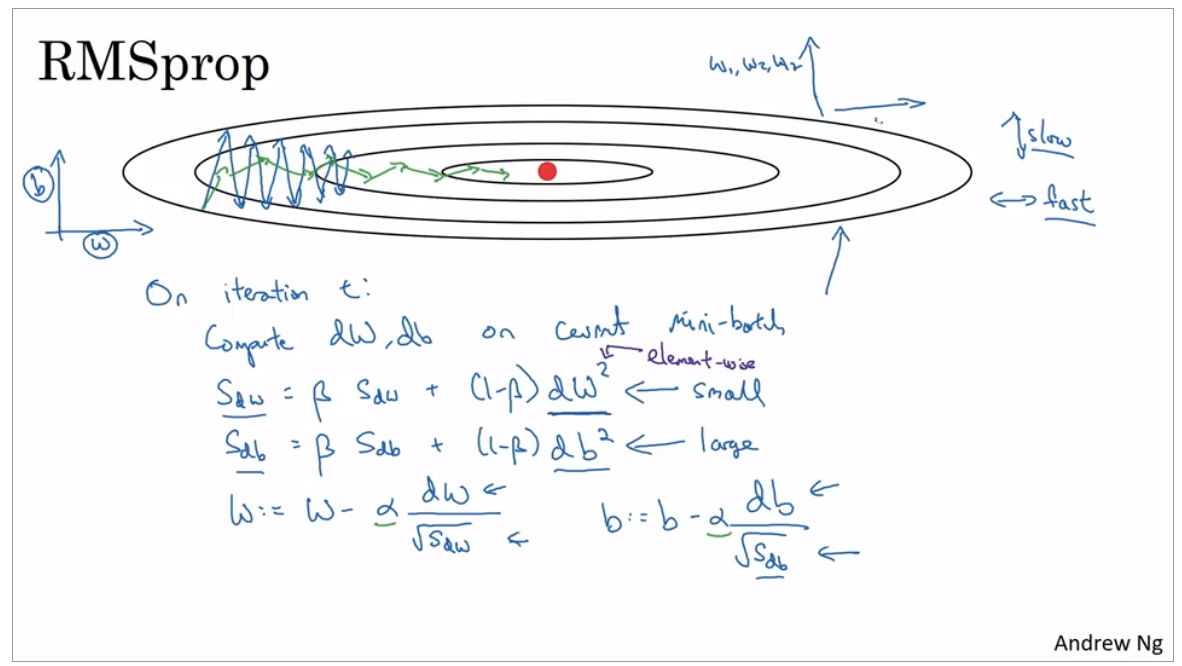 RMSprop
w₁, w₂, w₃
slow
b
fast
w
On iteration t:
Compute dW, db on current mini-batch
element-wise
S_dw = β S_dw + (1-β) dW² ← small
S_db = β S_db + (1-β) db² ← large
W := W - α dW/√S_dw ← b := b - α db/√S_db ←
Andrew Ng